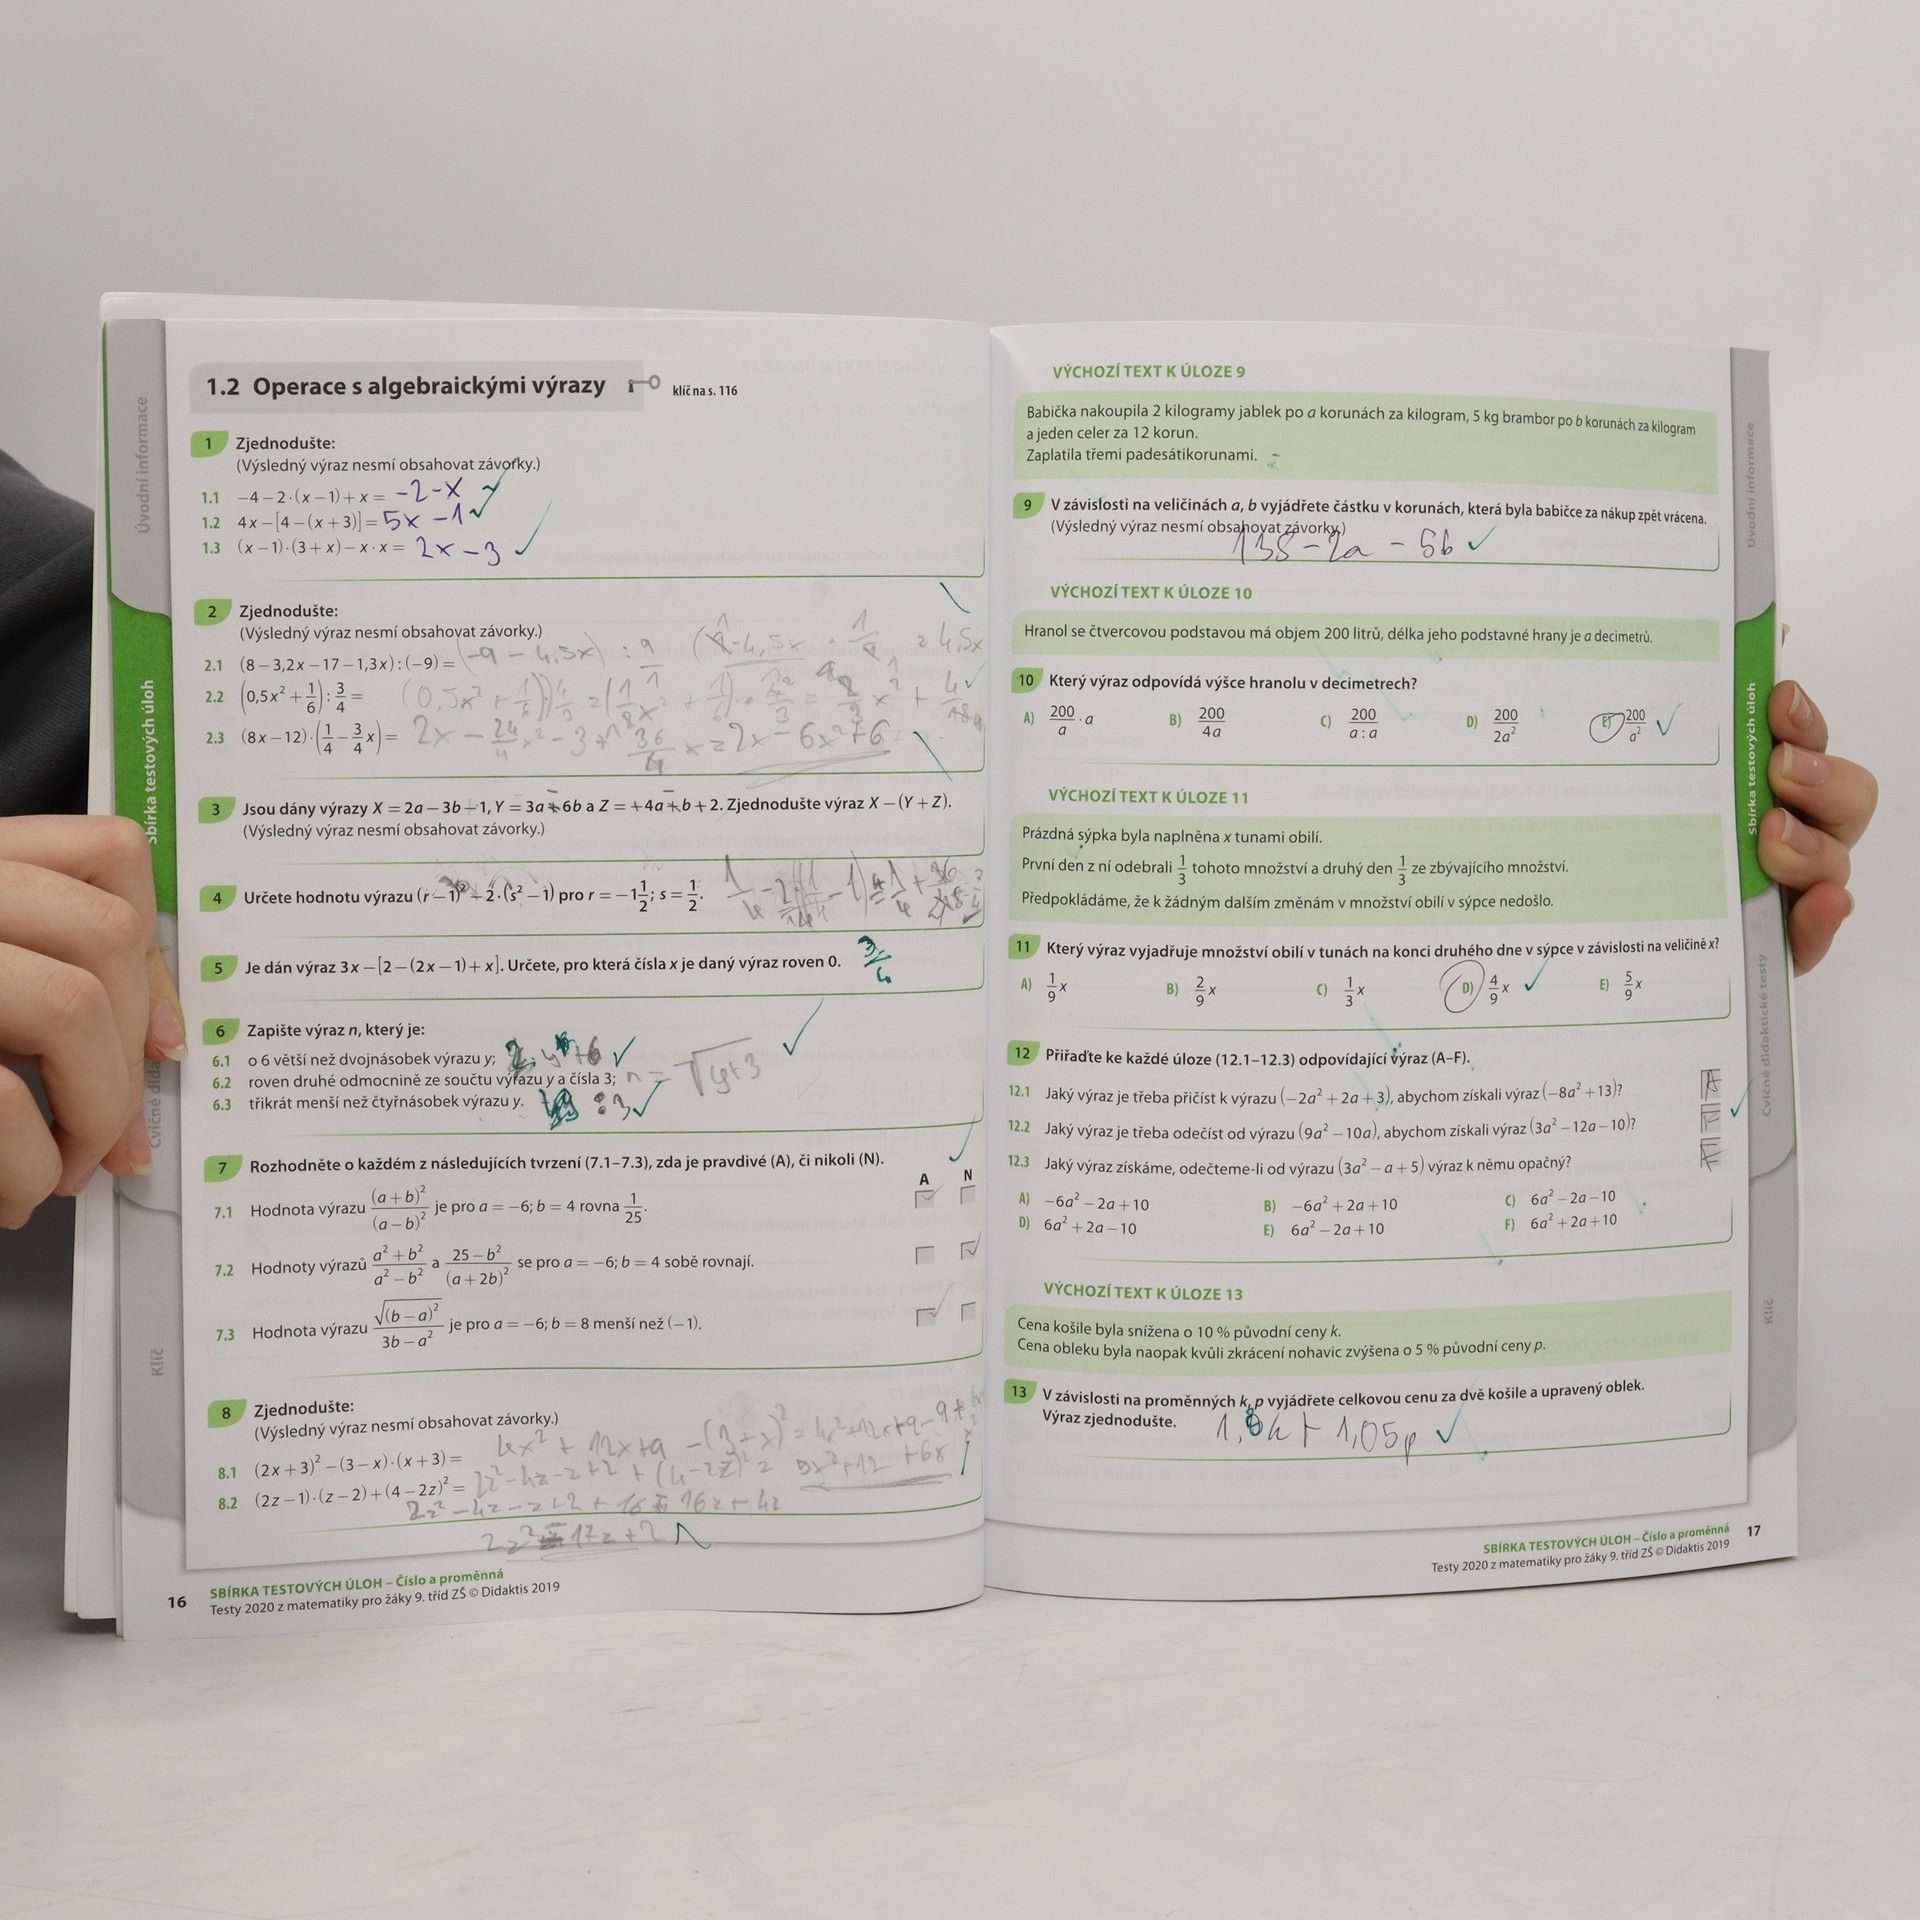 Úvodní informace
Sbírka testových úloh
Klíč
1.2 Operace s algebraickými výrazy
klíč na s. 116
1 Zjednodušte:
(Výsledný výraz nesmí obsahovat závorky.)
1.1 −4 − 2·(x − 1) + x = -2-x
1.2 4x − [4 − (x + 3)] = 5x -1
1.3 (x − 1)·(3 + x) − x·x = 2x-3
2 Zjednodušte:
(Výsledný výraz nesmí obsahovat závorky.)
2.1 (8 − 3,2x − 17 − 1,3x) : (−9) =
2.2 (0,5x² + 1/6) : 3/4 =
2.3 (8x − 12)·(1/4 − 3/4 x) =
3 Jsou dány výrazy X = 2a − 3b − 1, Y = 3a + 6b a Z = +4a + b + 2. Zjednodušte výraz X − (Y + Z).
(Výsledný výraz nesmí obsahovat závorky.)
4 Určete hodnotu výrazu (r − 1)² − 2·(s² − 1) pro r = −1 1/2; s = 1/2.
5 Je dán výraz 3x − [2 − (2x − 1) + x]. Určete, pro která čísla x je daný výraz roven 0. 3/4
6 Zapište výraz n, který je:
6.1 o 6 větší než dvojnásobek výrazu y;
6.2 roven druhé odmocnině ze součtu výrazu y a čísla 3; n = √y+3
6.3 třikrát menší než čtyřnásobek výrazu y. :3
7 Rozhodněte o každém z následujících tvrzení (7.1–7.3), zda je pravdivé (A), či nikoli (N).
A N
7.1 Hodnota výrazu (a + b)²/(a − b)² je pro a = −6; b = 4 rovna 1/25.
7.2 Hodnoty výrazů (a² + b²)/(a² − b²) a (25 − b²)/(a + 2b)² se pro a = −6; b = 4 sobě rovnají.
7.3 Hodnota výrazu √(b − a)²/(3b − a²) je pro a = −6; b = 8 menší než (−1).
8 Zjednodušte:
(Výsledný výraz nesmí obsahovat závorky.)
8.1 (2x + 3)² − (3 − x)·(x + 3) =
8.2 (2z − 1)·(z − 2) + (4 − 2z)² =
16 SBÍRKA TESTOVÝCH ÚLOH – Číslo a proměnná
Testy 2020 z matematiky pro žáky 9. tříd ZŠ © Didaktis 2019
VÝCHOZÍ TEXT K ÚLOZE 9
Babička nakoupila 2 kilogramy jablek po a korunách za kilogram, 5 kg brambor po b korunách za kilogram
a jeden celer za 12 korun.
Zaplatila třemi padesátikorunami.
9 V závislosti na veličinách a, b vyjádřete částku v korunách, která byla babičce za nákup zpět vrácena.
(Výsledný výraz nesmí obsahovat závorky.)
138 - 2a - 5b
VÝCHOZÍ TEXT K ÚLOZE 10
Hranol se čtvercovou podstavou má objem 200 litrů, délka jeho podstavné hrany je a decimetrů.
10 Který výraz odpovídá výšce hranolu v decimetrech?
A) 200/a · a B) 200/4a C) 200/a : a D) 200/2a² E) 200/a²
VÝCHOZÍ TEXT K ÚLOZE 11
Prázdná sýpka byla naplněna x tunami obilí.
První den z ní odebrali 1/3 tohoto množství a druhý den 1/3 ze zbývajícího množství.
Předpokládáme, že k žádným dalším změnám v množství obilí v sýpce nedošlo.
11 Který výraz vyjadřuje množství obilí v tunách na konci druhého dne v sýpce v závislosti na veličině x?
A) 1/9 x B) 2/9 x C) 1/3 x D) 4/9 x E) 5/9 x
12 Přiřaďte ke každé úloze (12.1–12.3) odpovídající výraz (A–F).
12.1 Jaký výraz je třeba přičíst k výrazu (−2a² + 2a + 3), abychom získali výraz (−8a² + 13)? A
12.2 Jaký výraz je třeba odečíst od výrazu (9a² − 10a), abychom získali výraz (3a² − 12a − 10)? F
12.3 Jaký výraz získáme, odečteme-li od výrazu (3a² − a + 5) výraz k němu opačný? E
A) −6a² − 2a + 10 B) −6a² + 2a + 10 C) 6a² − 2a − 10
D) 6a² + 2a − 10 E) 6a² − 2a + 10 F) 6a² + 2a + 10
VÝCHOZÍ TEXT K ÚLOZE 13
Cena košile byla snížena o 10 % původní ceny k.
Cena obleku byla naopak kvůli zkrácení nohavic zvýšena o 5 % původní ceny p.
13 V závislosti na proměnných k, p vyjádřete celkovou cenu za dvě košile a upravený oblek.
Výraz zjednodušte. 1,8k + 1,05p
SBÍRKA TESTOVÝCH ÚLOH – Číslo a proměnná 17
Testy 2020 z matematiky pro žáky 9. tříd ZŠ © Didaktis 2019
Úvodní informace
Sbírka testových úloh
Cvičné didaktické testy
Klíč